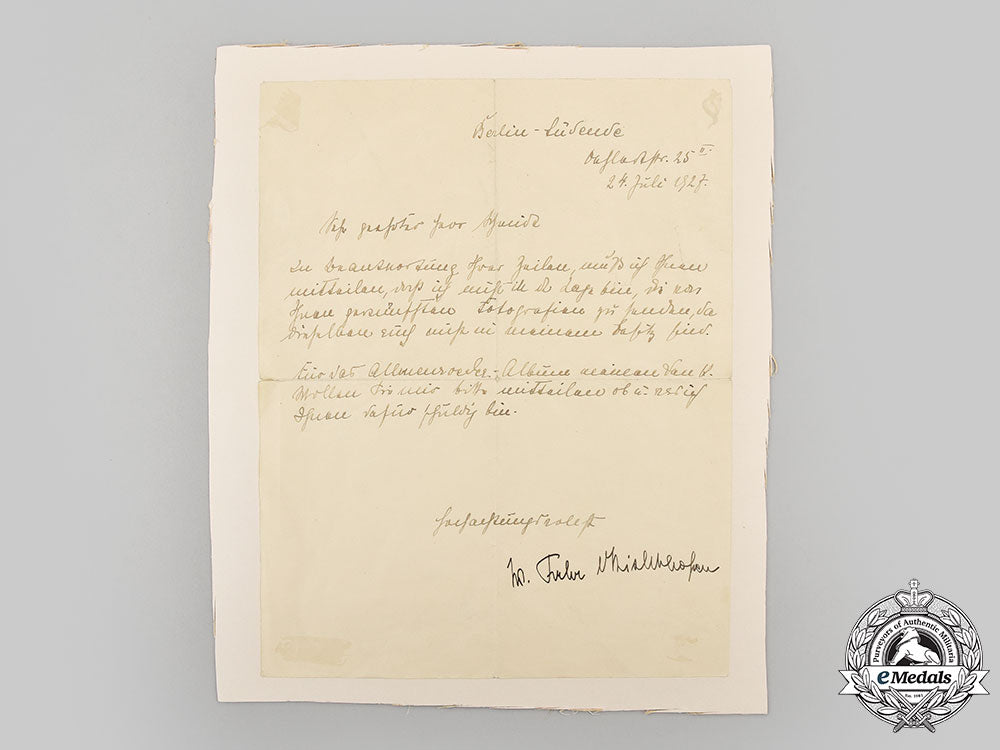 Berlin-Südende
Oehlertstr. 25 II.
24. Juli 1927.
Sehr geehrter Herr Schmidt
In Beantwortung Ihrer Zeilen, muß ich Ihnen
mitteilen, daß ich nicht in der Lage bin, die von
Ihnen gewünschten Fotografien zu senden, da
dieselben sich nicht in meinem Besitz sind.
Für das Allmenroeder-Album meinen Dank.
Wollen Sie mir bitte mitteilen ob u. was ich
Ihnen dafür schuldig bin.
Hochachtungsvollst
Frhr
Purveyors of Authentic Militaria
eMedals